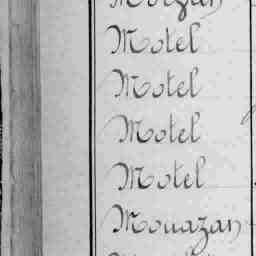 Morgan
Motel
Motel
Motel
Motel
Mouazan